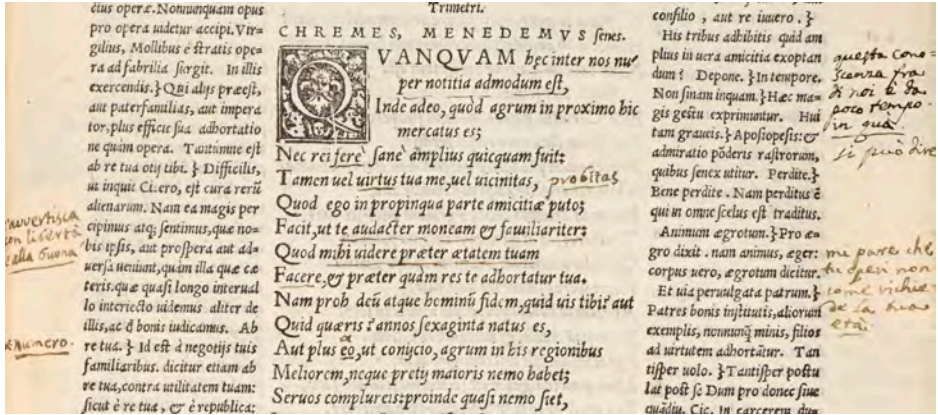 ctus operæ. Nonnunquam opus
pro opera uidetur accipi. Vir=
gilius, Mollibus è stratis ope=
ra ad fabrilia surgit. In illis
exercendis.} Qui alijs præest,
aut paterfamilias, aut impera
tor, plus efficit sua adhortatio
ne quàm opera. Tantumne est
ab re tua otij tibi. } Difficilis,
ut inquit Cicero, est cura rerū
alienarum. Nam ea magis per
cipimus atq; sentimus, quæ no=
bis ipsis, aut prospera aut ad=
uersa ueniunt, quàm illa quæ cæ
teris. quæ quasi longo interual
lo interiecto uidemus aliter de
illis, ac đ bonis iudicamus. Ab
re tua. } Id est à negotijs tuis
familiaribus. dicitur etiam ab
re tua, contra utilitatem tuam:
sicut è re tua, & è republica;
avvertisca
con libertà
e alla buona
numero.
Trimetri.
CHREMES, MENEDEMVS senes.
QVANQVAM hęc inter nos nu=
per notitia admodum est,
Inde adeo, quòd agrum in proximo hic
mercatus es;
Nec rei ferè sanè amplius quicquam fuit:
Tamen uel uirtus tua me, uel uicinitas, probitas
Quod ego in propinqua parte amicitiæ puto;
Facit, ut te audacter moneam & familiariter:
Quod mihi uidere præter ætatem tuam
Facere, & præter quàm res te adhortatur tua.
Nam proh deū atque hominū fidem, quid uis tibi? aut
Quid quæris? annos sexaginta natus es,
Aut plus eo, ut conijcio, agrum in his regionibus
Meliorem, neque pretij maioris nemo habet;
Seruos complureis: proinde quasi nemo siet,
consilio, aut re iuuero. }
His tribus adhibitis quid am
plius in uera amicitia exoptan
dum? Depone. } In tempore.
Non sinam inquam. } Hæc ma=
gis gestu exprimuntur. Hui
tam graueis. } Aposiopesis: &
admiratio pōderis rastrorum,
quibus senex utitur. Perdite. }
Bene perdite. Nam perditus ē
qui in omne scelus est traditus.
Animum ægrotum. } Pro æ=
gro dixit. nam animus, æger:
corpus uero, ægrotum dicitur.
Et uia peruulgata patrum. }
Patres bonis institutis, aliorum
exemplis, nonnunq̃ minis, filios
ad uirtutem adhortātur. Tan
tisper uolo. } Tantisper postu
lat post se Dum pro donec siue
quādiu. Cic. In carcerem dum
questa cono=
scenza fra
di noi è da
poco tempo
in quà.
si può dire
mi pare che
tu operi non
come richiede
de la tua
età.